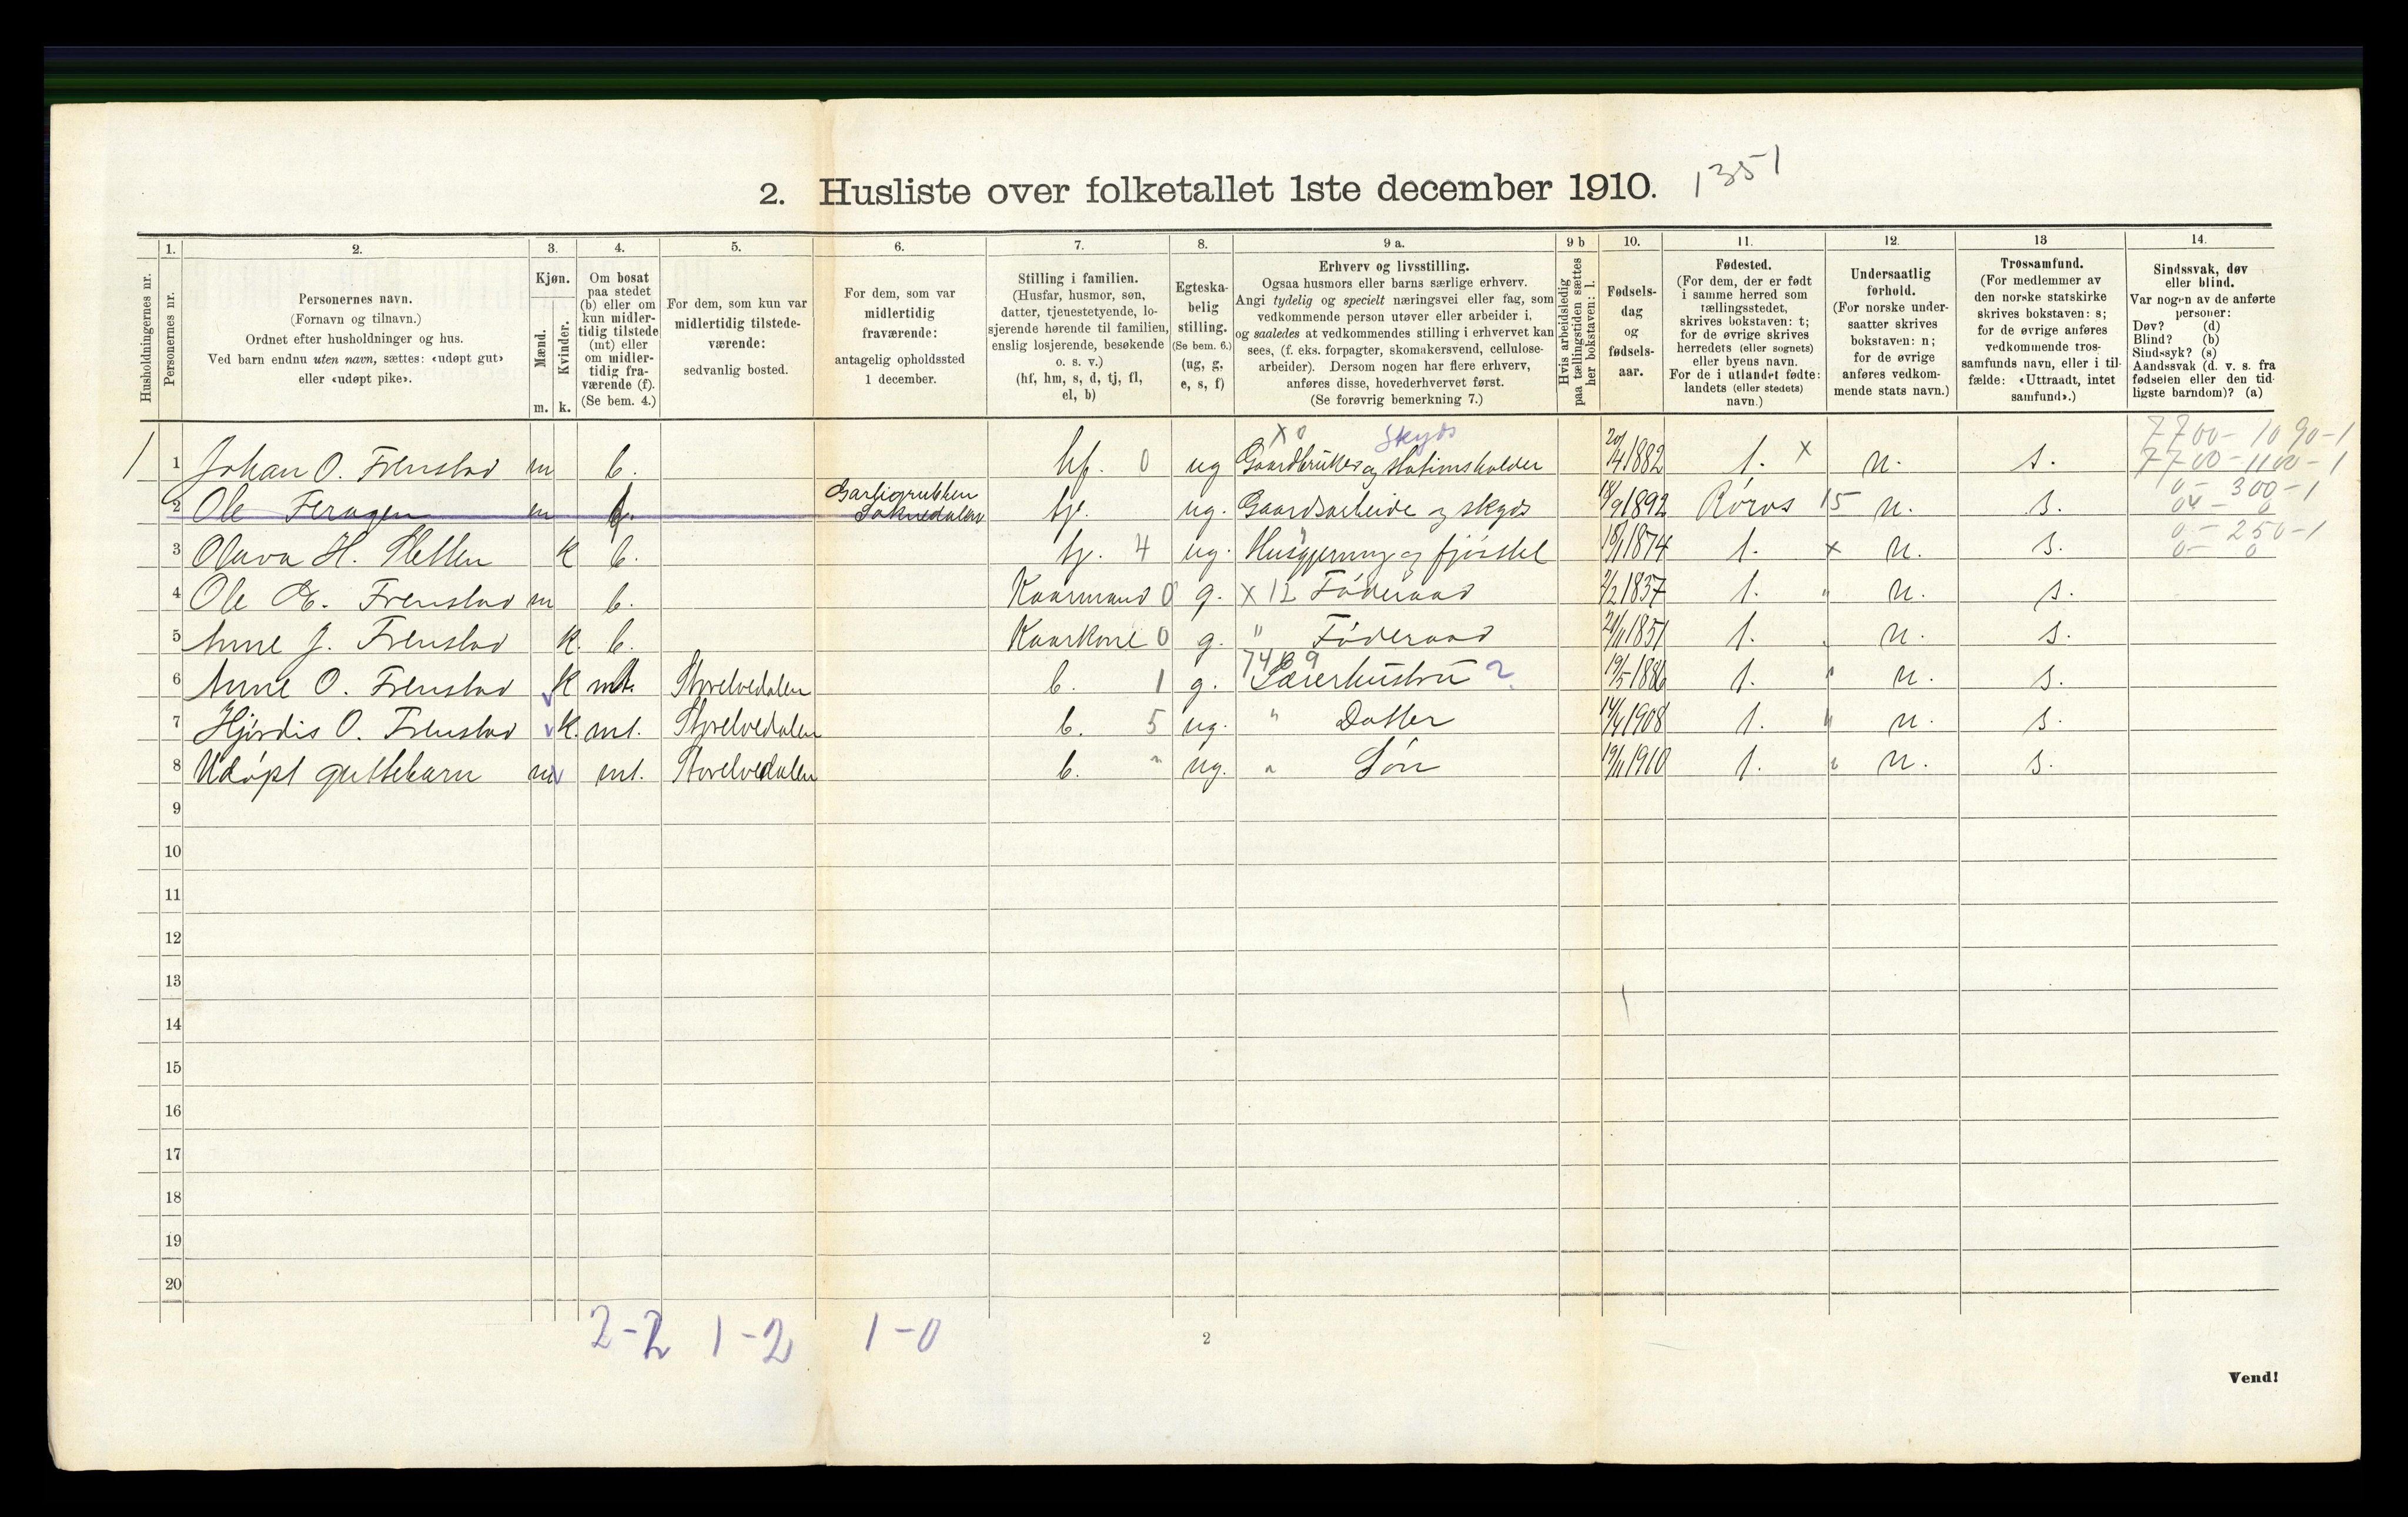 2. Husliste over folketallet 1ste december 1910. 1351
1. 2. 3. 4. 5. 6. 7. 8. 9 a. 9 b 10. 11. 12. 13 14.
Husholdningernes nr.
Personernes nr.
Personernes navn.
(Fornavn og tilnavn.)
Ordnet efter husholdninger og hus.
Ved barn endnu uten navn, sættes: «udøpt gut»
eller «udøpt pike».
Kjøn.
Mænd.
Kvinder.
m. k.
Om bosat
paa stedet
(b) eller om
kun midler-
tidig tilstede
(mt) eller
om midler-
tidig fra-
værende (f).
(Se bem. 4.)
For dem, som kun var
midlertidig tilstede-
værende:
sedvanlig bosted.
For dem, som var
midlertidig
fraværende:
antagelig opholdssted
1 december.
Stilling i familien.
(Husfar, husmor, søn,
datter, tjenestetyende, lo-
sjerende hørende til familien,
enslig losjerende, besøkende
o. s. v.)
(hf, hm, s, d, tj, fl,
el, b)
Egteska-
belig
stilling.
(Se bem. 6.)
(ug, g,
e, s, f)
Erhverv og livsstilling.
Ogsaa husmors eller barns særlige erhverv.
Angi tydelig og specielt næringsvei eller fag, som
vedkommende person utøver eller arbeider i,
og saaledes at vedkommendes stilling i erhvervet kan
sees, (f. eks. forpagter, skomakersvend, cellulose-
arbeider). Dersom nogen har flere erhverv,
anføres disse, hovederhvervet først.
(Se forøvrig bemerkning 7.)
Hvis arbeidsledig
paa tællingstiden sættes
her bokstaven: l.
Fødsels-
dag
og
fødsels-
aar.
Fødested.
(For dem, der er født
i samme herred som
tællingsstedet,
skrives bokstaven: t;
for de øvrige skrives
herredets (eller sognets)
eller byens navn.
For de i utlandet fødte:
landets (eller stedets)
navn.)
Undersaatlig
forhold.
(For norske under-
saatter skrives
bokstaven: n;
for de øvrige
anføres vedkom-
mende stats navn.)
Trossamfund.
(For medlemmer av
den norske statskirke
skrives bokstaven: s;
for de øvrige anføres
vedkommende tros-
samfunds navn, eller i til-
fælde: «Uttraadt, intet
samfund».)
Sindssvak, døv
eller blind.
Var nogen av de anførte
personer:
Døv? (d)
Blind? (b)
Sindssyk? (s)
Aandssvak (d. v. s. fra
fødselen eller den tid-
ligste barndom)? (a)
x 0 Skyds 7700-1090-1
1 1 Johan O. Frenstad m b. hf. 0 ug Gaardbruker og stationsholder 20/4 1882 t. x n. s. 7700-1100-1
Garligrubben 0- 300-1
2 Ole Feragen m f. Soknedalen tj. ug. Gaardsarbeide og skyds 18/9 1892 Røros 15 n. s. 04- 0
0- 250-1
3 Olava H. Sletten k b. tj. 4 ug. Husgjerning og fjøsstel 18/1 1874 t. x n. s. 0- 0
4 Ole E. Frenstad m b. Kaarmand 0 g. x 12 Føderaad 2/2 1837 t. " n. s.
5 Anne J. Frenstad k. b. Kaarkone 0 g. " Føderaad 21/11 1851 t. " n. s.
6 Anne O. Frenstad k mt. Storelvedalen b. 1 g. Lærerhustru 2 19/5 1886 t. " n. s.
7 Hjørdis O. Frenstad k. mt. Storelvedalen b. 5 ug. " Datter 14/4 1908 t. " n. s.
8 Udøpt guttebarn m mt. Storelvedalen b. " ug. " Søn 19/11 1910 t. " n. s.
9
10
11
12
13
14
15
16
17
18
19
20
2-2 1-2 1-0
2
Vend!